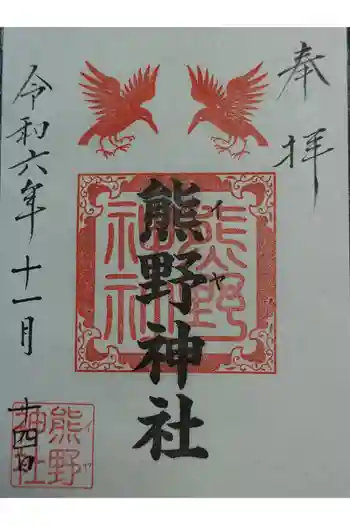 奉拝
熊野神社
イヤ
熊野神社
令和六年十一月
十四日
熊野神社
イヤ